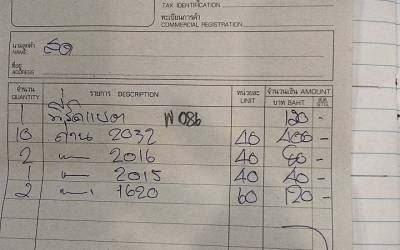 TAX IDENTIFICATION
ทะเบียนการค้า
COMMERCIAL REGISTRATION
นามลูกค้า
NAME สด
ที่อยู่
ADDRESS
จำนวน รายการ DESCRIPTION หน่วยละ จำนวนเงิน AMOUNT
QUANTITY UNIT บาท BAHT
1 W086 120 -
10 ถ่าน 2032 40 400 -
2 2016 40 80 -
1 2015 40 40 -
2 1620 60 120 -